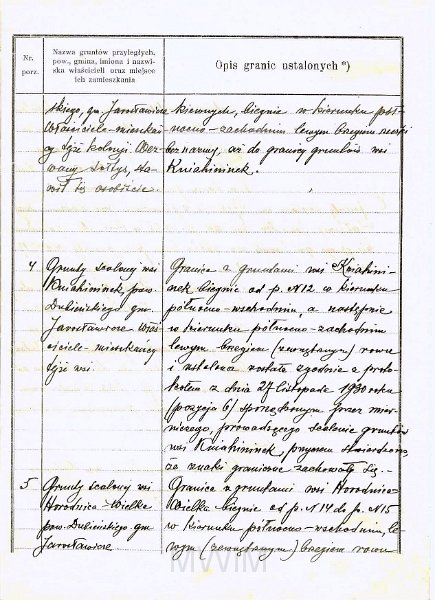 Nr.
porz.
Nazwa gruntów przyległych,
pow., gmina, imiona i nazwi-
ska właścicieli oraz miejsce
ich zamieszkania
Opis granic ustalonych *)
skiego, gm. Jarosławicze
Właściciele-mieszkań-
cy tejże kolonji. Wez-
wany Sołtys, sta-
wił się osobiście.
biegnie w kierunku pół-
nocno-zachodnim lewym brzegiem rzeczki
bez nazwy, aż do granicy gruntów wsi
Kniahininek.
4
Grunty scalone wsi
Kniahininek, pow.
Dubieńskiego gm.
Jarosławicze Właś-
ciciele-mieszkańcy
tejże wsi
Granica z gruntami wsi Kniahini-
nek biegnie od p. N12 w kierunku
północno-wschodnim, a następnie
w kierunku północno-zachodnim
lewym brzegiem (zewnętrznym) rowu
i ustalona została zgodnie z proto-
kołem z dnia 27 listopada 1930 roku
(pozycja 6) sporządzonym przez mier-
niczego, prowadzącego scalenie gruntów
wsi Kniahininek, przyczem stwierdzono,
że znaki graniczne zachowały się.
5
Grunty scalone wsi
Horodnica-Wielka
pow. Dubieńskiego gm.
Jarosławicze
Granica z gruntami wsi Horodnica-
Wielka biegnie od p. N14 do p. N15
w kierunku północno-wschodnim, le-
wym (zewnętrznym) brzegiem rowu
MWiM